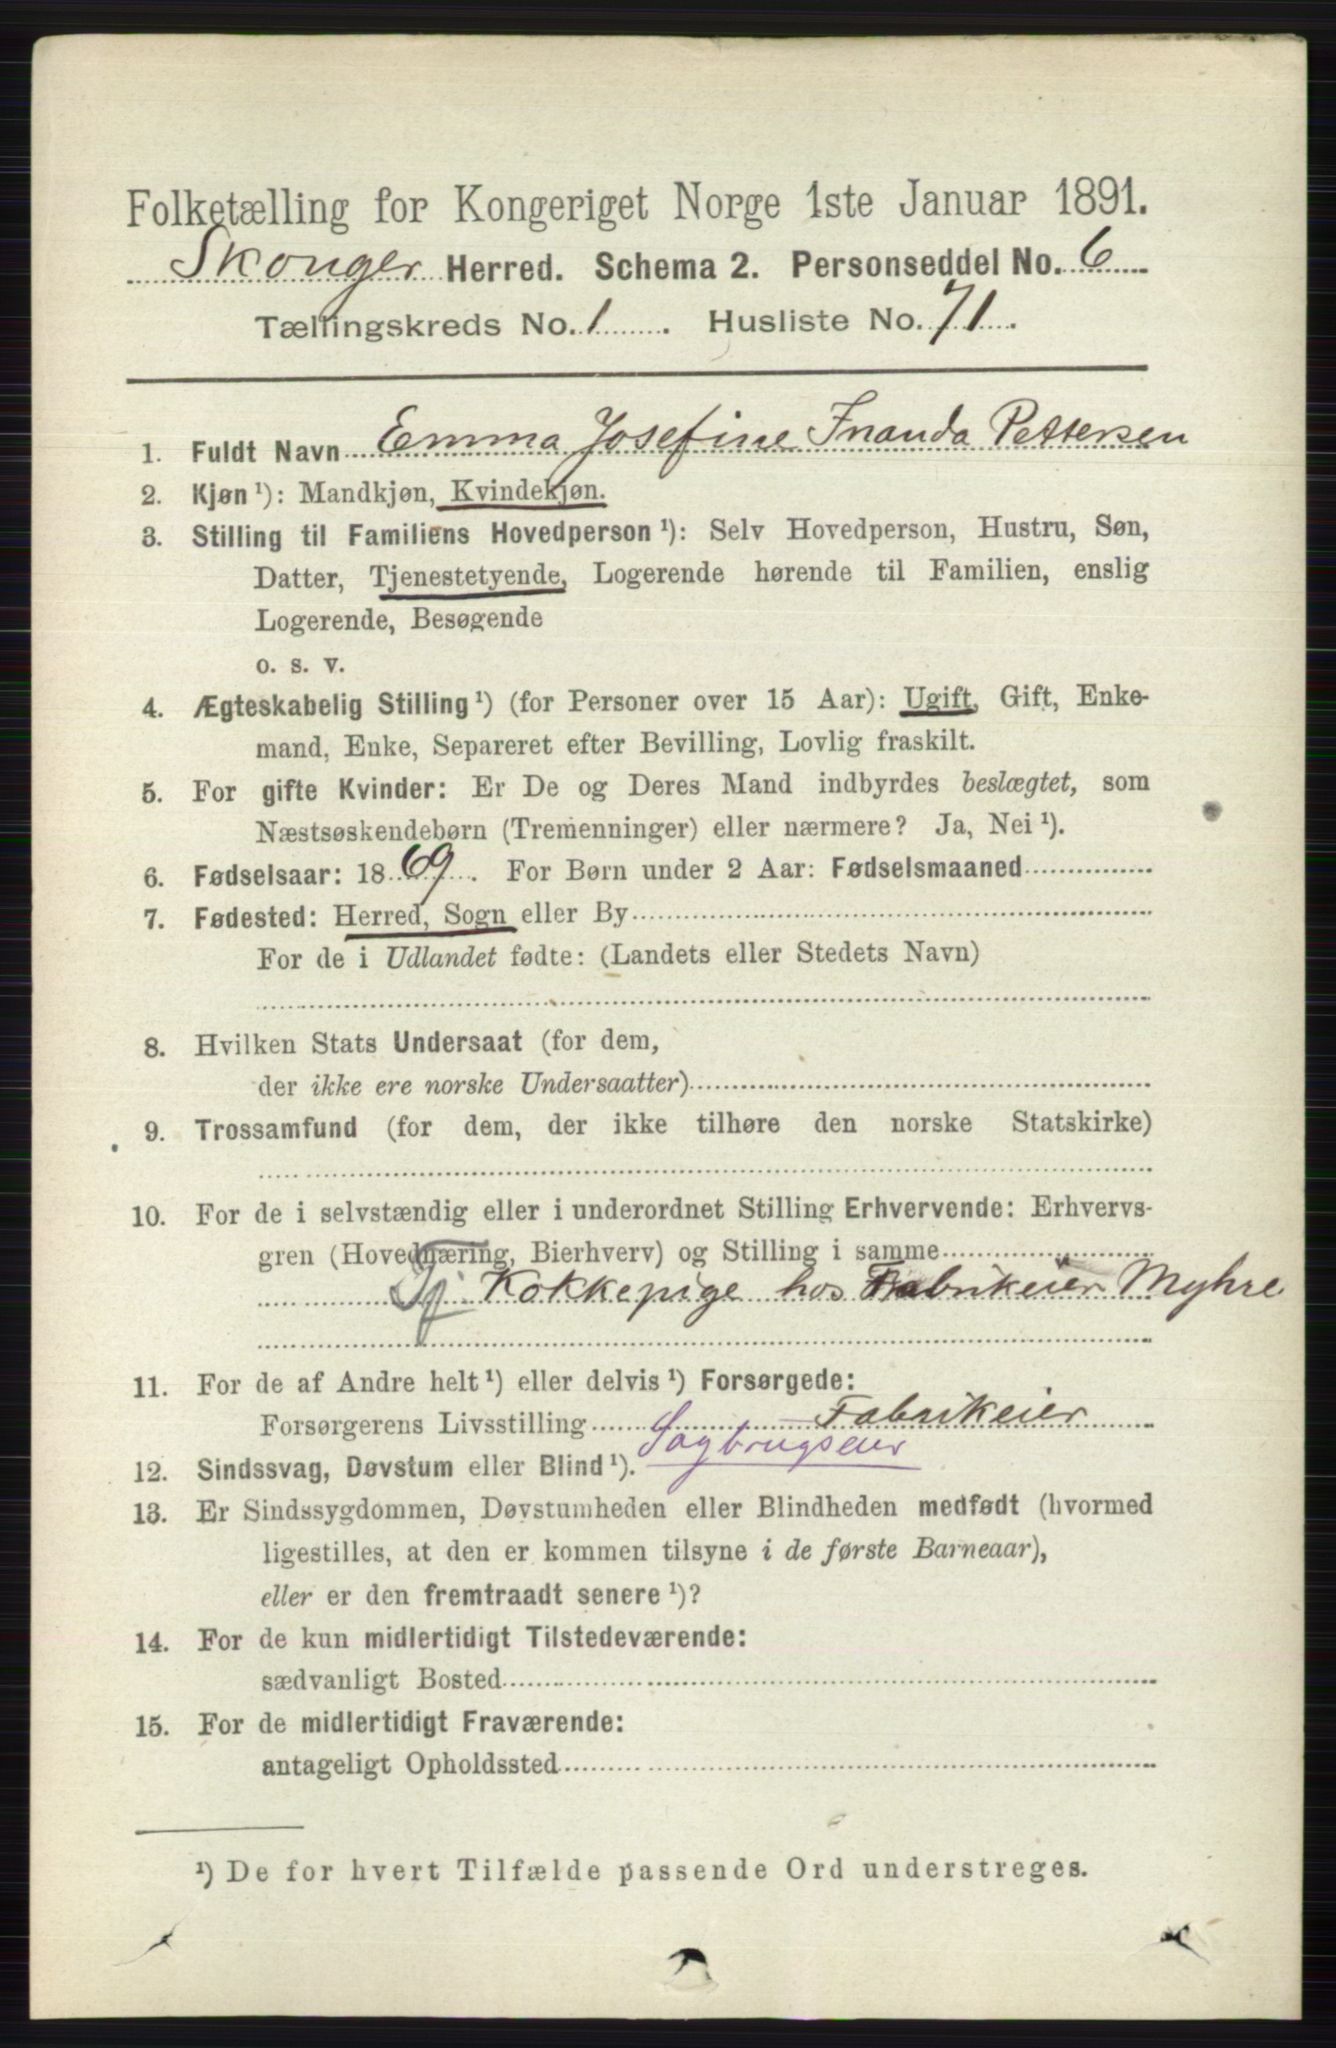 Folketælling for Kongeriget Norge 1ste Januar 1891.
Skouger Herred. Schema 2. Personseddel No. 6
Tællingskreds No. 1. Husliste No. 71.
1. Fuldt Navn Emma Josefine Inanda Pettersen
2. Kjøn ¹): Mandkjøn, Kvindekjøn.
3. Stilling til Familiens Hovedperson ¹): Selv Hovedperson, Hustru, Søn,
Datter, Tjenestetyende, Logerende hørende til Familien, enslig
Logerende, Besøgende
o. s. v.
4. Ægteskabelig Stilling ¹) (for Personer over 15 Aar): Ugift, Gift, Enke-
mand, Enke, Separeret efter Bevilling, Lovlig fraskilt.
5. For gifte Kvinder: Er De og Deres Mand indbyrdes beslægtet, som
Næstsøskendebørn (Tremenninger) eller nærmere? Ja, Nei ¹).
6. Fødselsaar: 1869. For Børn under 2 Aar: Fødselsmaaned
7. Fødested: Herred, Sogn eller By
For de i Udlandet fødte: (Landets eller Stedets Navn)
8. Hvilken Stats Undersaat (for dem,
der ikke ere norske Undersaatter)
9. Trossamfund (for dem, der ikke tilhøre den norske Statskirke)
10. For de i selvstændig eller i underordnet Stilling Erhvervende: Erhvervs-
gren (Hovednæring, Bierhverv) og Stilling i samme
Tj. Kokkepige hos Fabrikeier Myhre
11. For de af Andre helt ¹) eller delvis ¹) Forsørgede:
Forsørgerens Livsstilling Fabrikeier
Sagbrugseier
12. Sindssvag, Døvstum eller Blind ¹).
13. Er Sindssygdommen, Døvstumheden eller Blindheden medfødt (hvormed
ligestilles, at den er kommen tilsyne i de første Barneaar),
eller er den fremtraadt senere ¹)?
14. For de kun midlertidigt Tilstedeværende:
sædvanligt Bosted
15. For de midlertidigt Fraværende:
antageligt Opholdssted
¹) De for hvert Tilfælde passende Ord understreges.